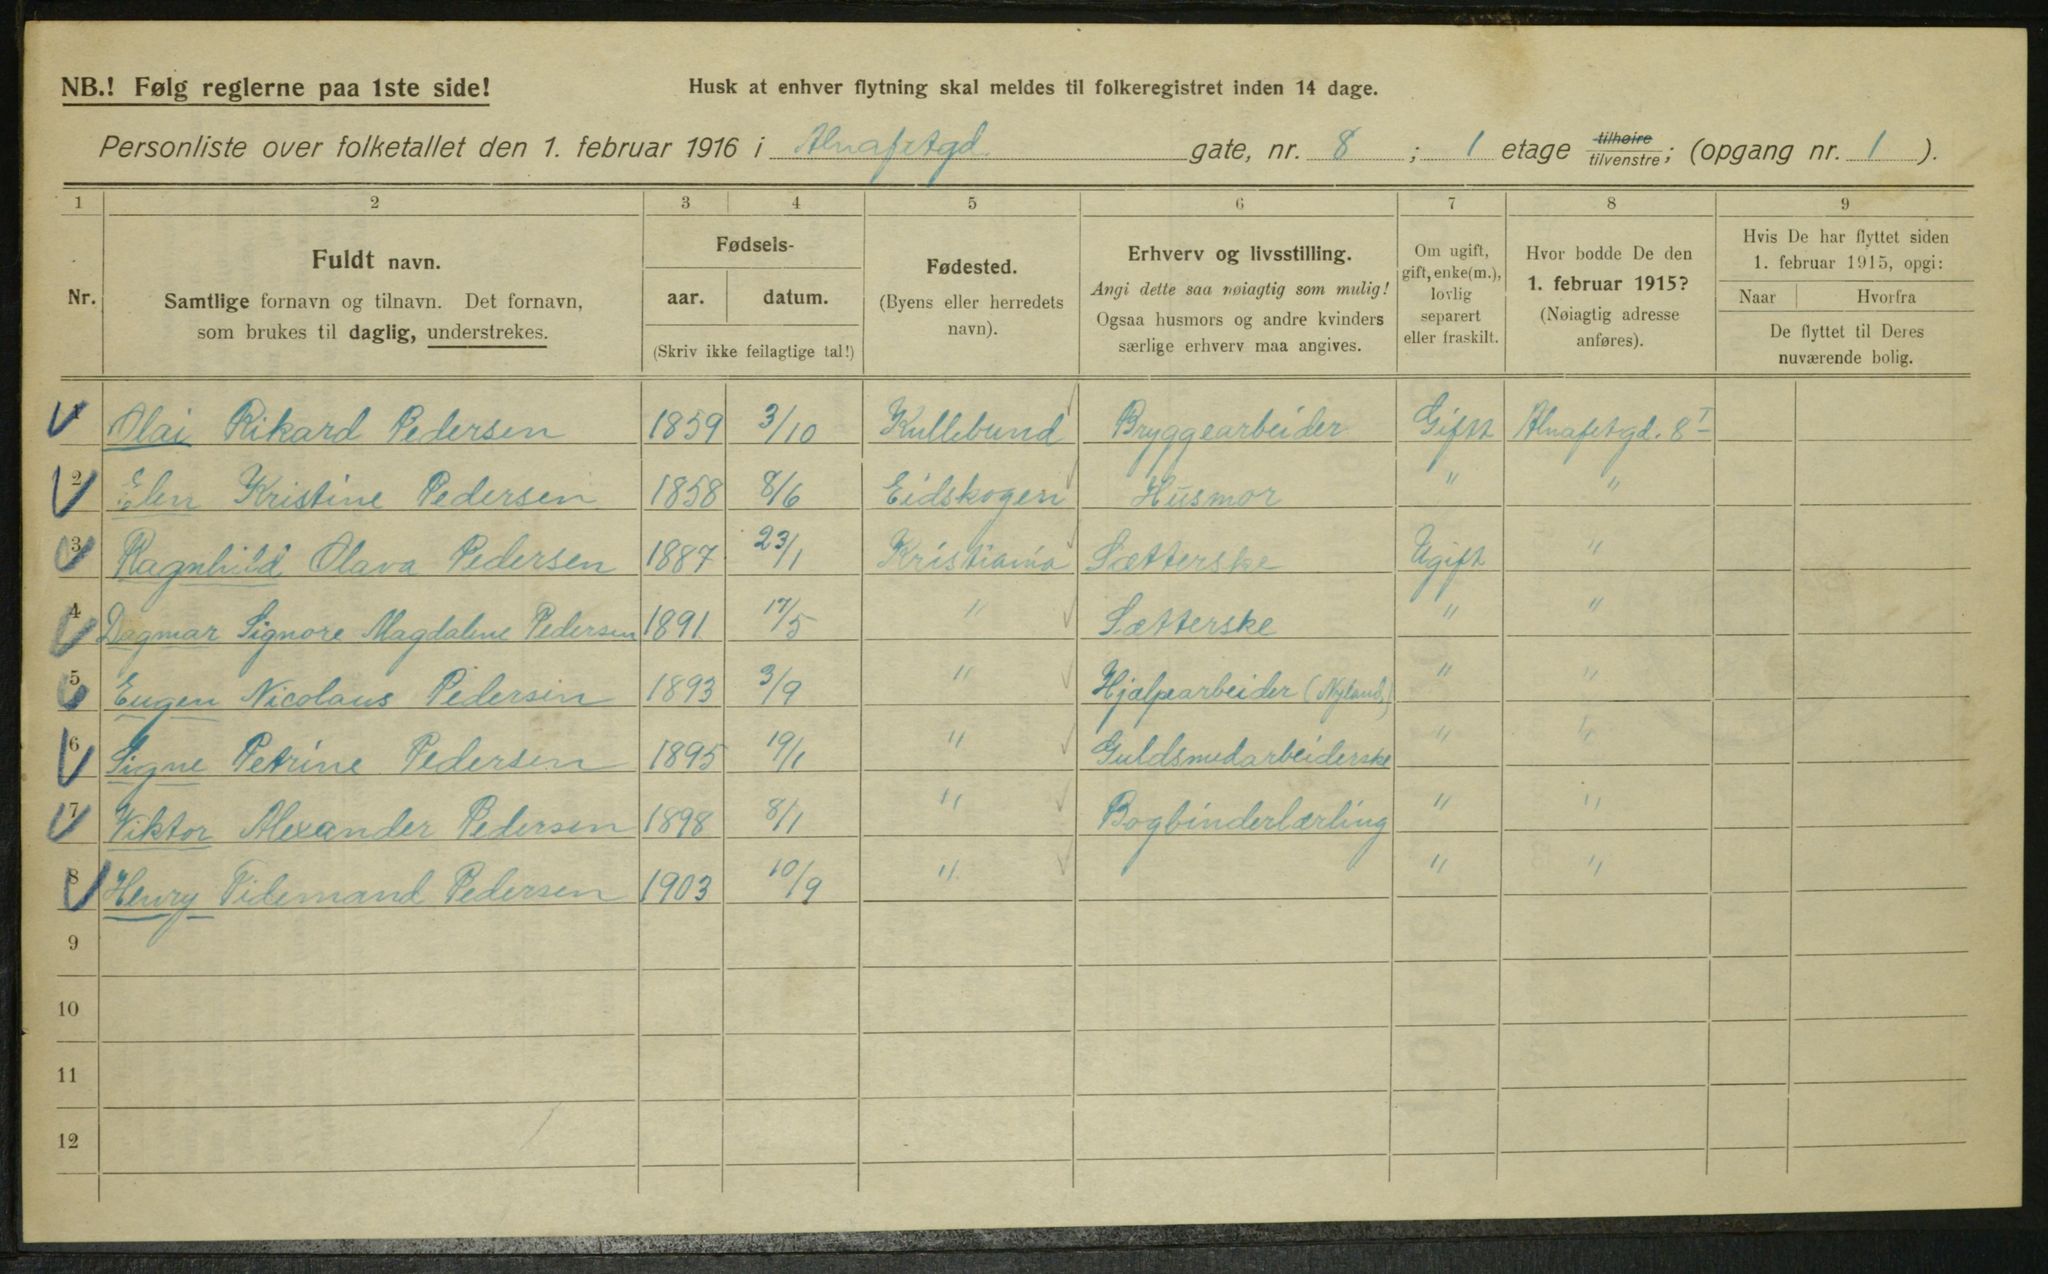 NB.! Følg reglerne paa 1ste side!
Husk at enhver flytning skal meldes til folkeregistret inden 14 dage.
Personliste over folketallet den 1. februar 1916 i Alnafetgd. gate, nr. 8 ; 1 etage tilhøire tilvenstre; (opgang nr. 1 ).
1 2 3 4 5 6 7 8 9
Nr.
Fuldt navn.
Samtlige fornavn og tilnavn. Det fornavn,
som brukes til daglig, understrekes.
Fødsels-
aar. datum.
(Skriv ikke feilagtige tal!)
Fødested.
(Byens eller herredets
navn).
Erhverv og livsstilling.
Angi dette saa nøiagtig som mulig!
Ogsaa husmors og andre kvinders
særlige erhverv maa angives.
Om ugift,
gift, enke(m.),
lovlig
separert
eller fraskilt.
Hvor bodde De den
1. februar 1915?
(Nøiagtig adresse
anføres).
Hvis De har flyttet siden
1. februar 1915, opgi:
Naar Hvorfra
De flyttet til Deres
nuværende bolig.
1 Olai Rikard Pedersen 1859 3/10 Kullebund Bryggearbeider Gift Alnafetgd. 8 I
2 Elen Kristine Pedersen 1858 8/6 Eidskogen Husmor " "
3 Ragnhild Olava Pedersen 1887 23/1 Kristiania Sætterske Ugift "
4 Dagmar Signore Magdalene Pedersen 1891 17/5 " Sætterske " "
5 Eugen Nicolaus Pedersen 1893 3/9 " Hjælpearbeider (Nyland,) " "
6 Signe Petrine Pedersen 1895 19/1 " Guldsmedarbeiderske " "
7 Viktor Alexander Pedersen 1898 8/1 " Bogbinderlærling " "
8 Henry Tidemand Pedersen 1903 10/9 " " "
9
10
11
12